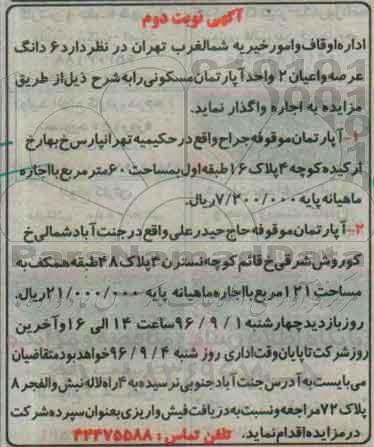 آگهی نوبت دوم
اداره اوقاف و امور خیریه شمالغرب تهران در نظر دارد ۶ دانگ
عرصه و اعیان ۲ واحد آپارتمان مسکونی را به شرح ذیل از طریق
مزایده به اجاره واگذار نماید.
۱- آپارتمان موقوفه جراح واقع در حکیمیه تهرانپارس خ بهار خ
ارکیده کوچه ۴ پلاک ۱۶ طبقه اول بمساحت ۶۰ متر مربع با اجاره
ماهیانه پایه ۷/۲۰۰/۰۰۰ ریال.
۲- آپارتمان موقوفه حاج حیدر علی واقع در جنت آباد شمالی خ
کوروش شرقی خ قائم کوچه نسترن ۴ پلاک ۴۸ طبقه همکف به
مساحت ۱۲۱ مربع با اجاره ماهیانه پایه ۲۱/۰۰۰/۰۰۰ ریال.
روز بازدید چهارشنبه ۱ / ۹ / ۹۶ ساعت ۱۴ الی ۱۶ و آخرین
روز شرکت تا پایان وقت اداری روز شنبه ۴ / ۹ / ۹۶ خواهد بود متقاضیان
می بایست به آدرس جنت آباد جنوبی نرسیده به ۴ راه لاله نبش والفجر ۸
پلاک ۷۲ مراجعه و نسبت به دریافت فیش واریزی بعنوان سپرده شرکت
در مزایده اقدام نماید. تلفن تماس: ۴۴۴۷۵۵۸۸